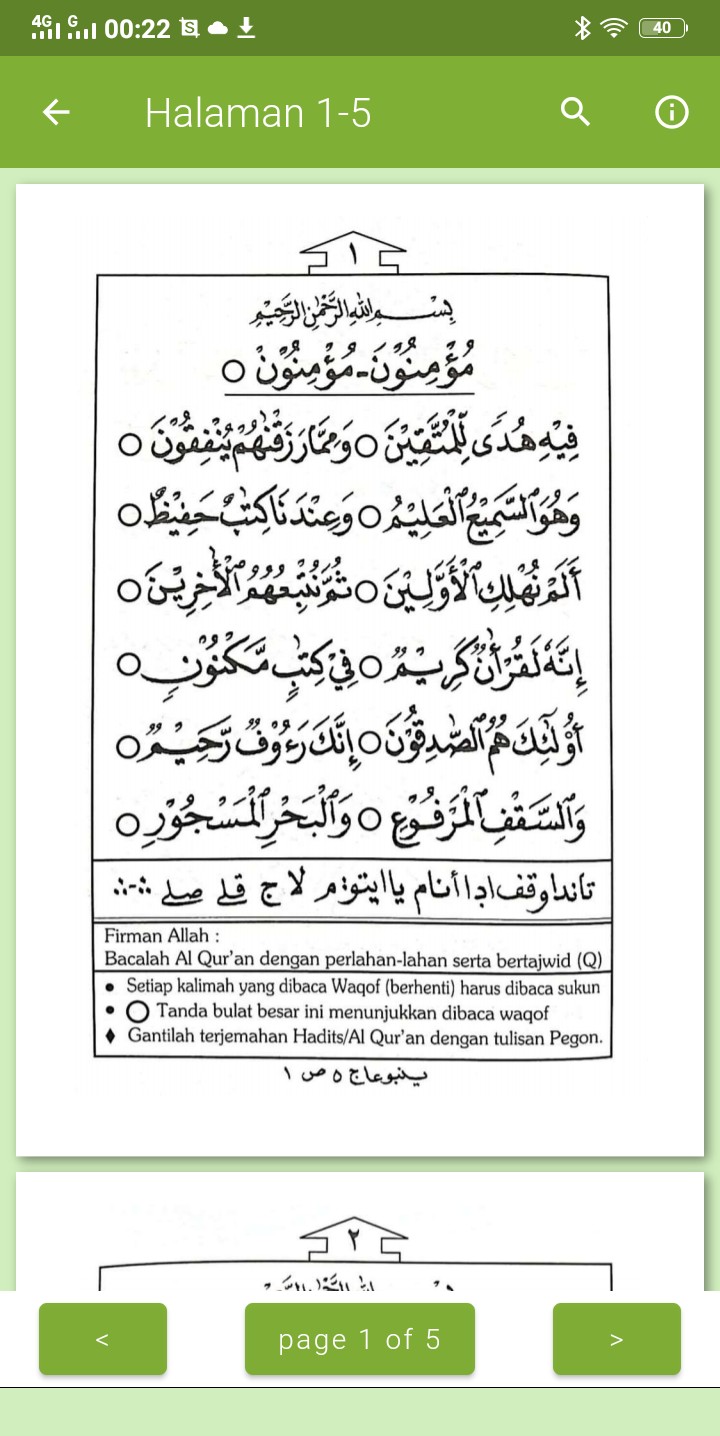 4G G 00:22 40
Halaman 1-5
١
بِسْــمِ اللهِ الرَّحْمٰنِ الرَّحِيْمِ
مُؤْمِنُوْنَ - مُؤْمِنُوْنْ ○
فِيْهِ هُدًى لِّلْمُتَّقِيْنَ ○ وَمِمَّا رَزَقْنٰهُمْ يُنْفِقُوْنَ ○
وَهُوَ ٱلسَّمِيْعُ ٱلْعَلِيْمُ ○ وَعِنْدَنَا كِتٰبٌ حَفِيْظٌ ○
أَلَمْ نُهْلِكِ ٱلْأَوَّلِيْنَ ○ ثُمَّ نُتْبِعُهُمُ ٱلْأٰخِرِيْنَ ○
إِنَّهُ لَقُرْأٰنٌ كَرِيْمٌ ○ فِيْ كِتٰبٍ مَّكْنُوْنٍ ○
أُولٰٓئِكَ هُمُ ٱلصّٰدِقُوْنَ ○ إِنَّكَ رَءُوْفٌ رَّحِيْمٌ ○
وَٱلسَّقْفِ ٱلْمَرْفُوْعِ ○ وَٱلْبَحْرِ ٱلْمَسْجُوْرِ ○
تاندا وقف ادا أنام يا ايتو: م لا ج قلے صلے ∴-∴
Firman Allah :
Bacalah Al Qur'an dengan perlahan-lahan serta bertajwid (Q)
• Setiap kalimah yang dibaca Waqof (berhenti) harus dibaca sukun
• ○ Tanda bulat besar ini menunjukkan dibaca waqof
♦ Gantilah terjemahan Hadits/Al Qur'an dengan tulisan Pegon.
ينبوعا ج ٥ ص ١
٢
< page 1 of 5 >